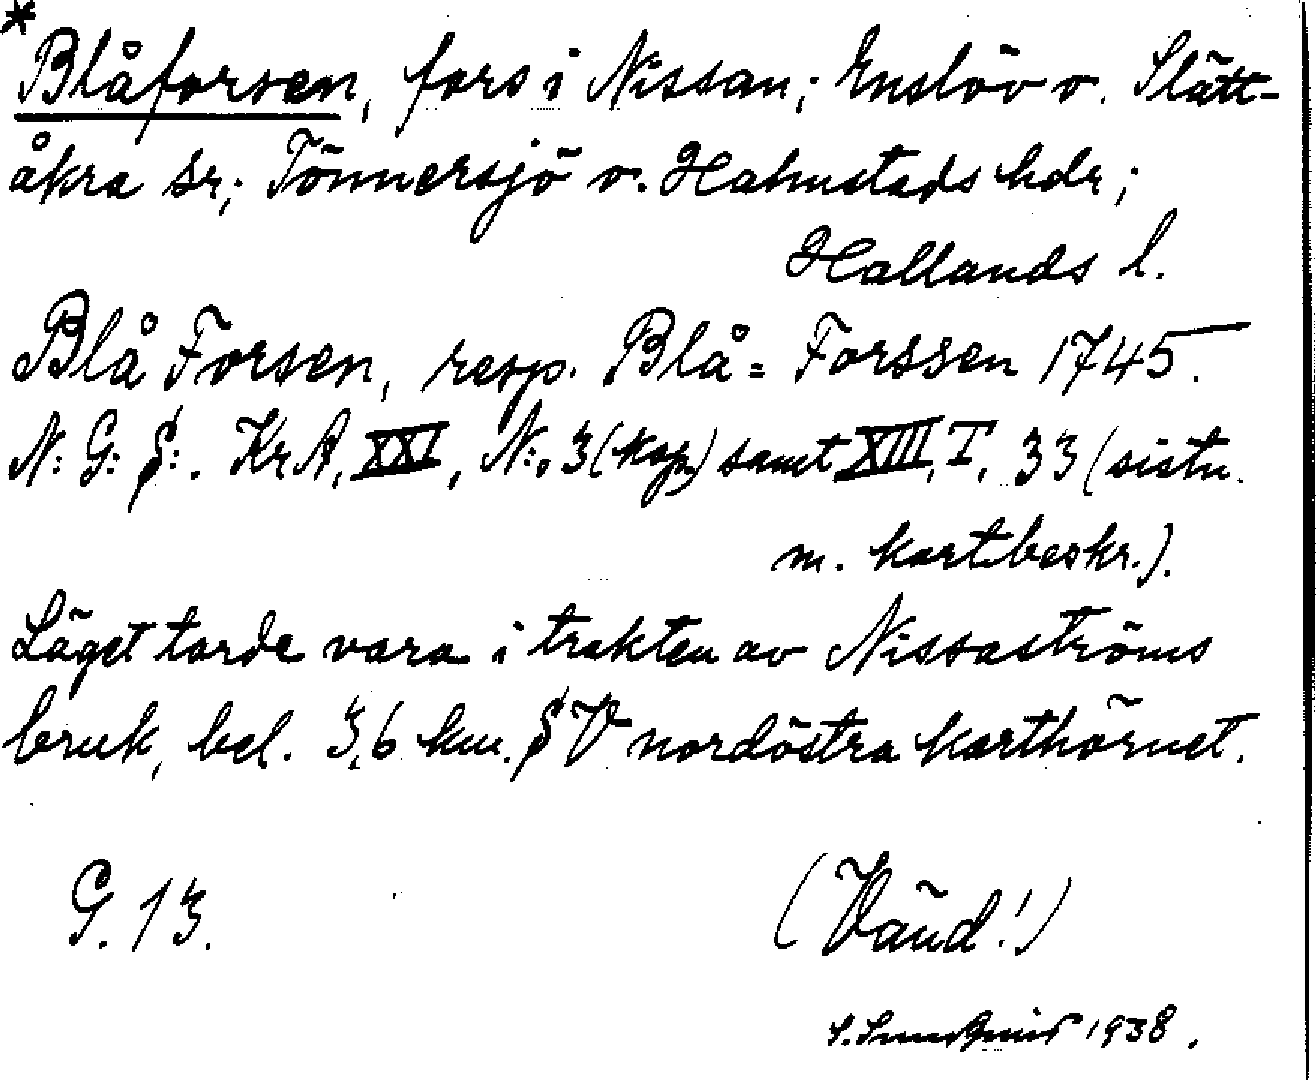 * Blåforsen, fors i Nissan; Enslöv o. Slätt-
åkra sr; Tönnersjö o. Halmstads hdr;
Hallands l.
Blå Forsen, resp. Blå= Forssen 1745.
N: G: S:. KrA, XXI, N:o 3 (kop.) samt XIII, T, 33 (sistn.
m. kartbeskr.).
Läget torde vara i trakten av Nissaströms
bruk, bel. 3,6 km. S V nordöstra karthörnet.
G. 13.
(Vänd!)
1938.